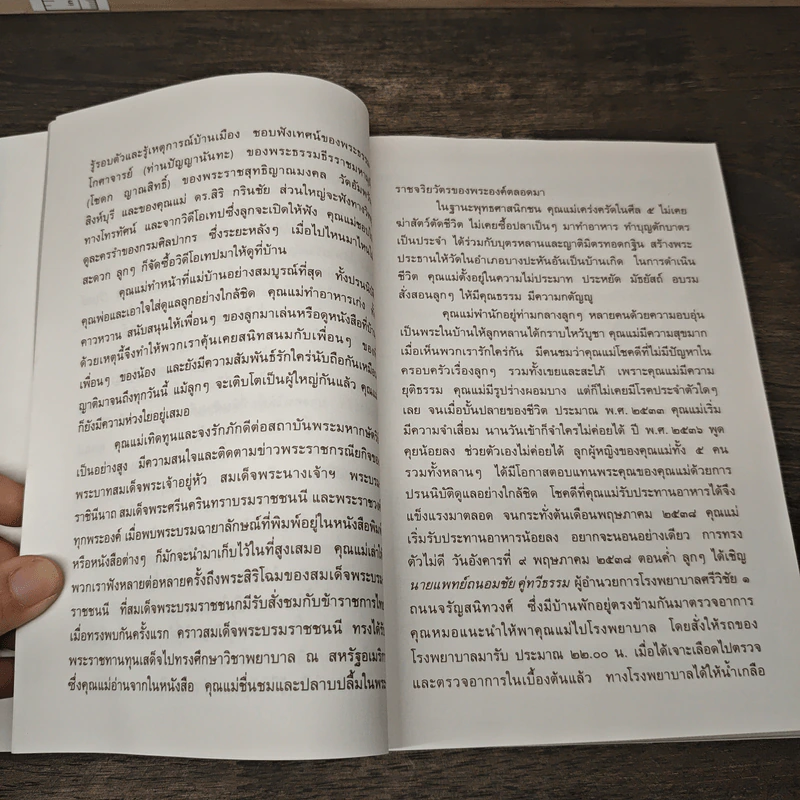 รู้รอบตัวและรู้เหตุการณ์บ้านเมือง ชอบฟังเทศน์ของพระธรรม
โกศาจารย์ (ท่านปัญญานันทะ) ของพระธรรมธีรราชมหามุนี
(โชดก ญาณสิทธิ์) ของพระราชสุทธิญาณมงคล วัดอัมพวัน
สิงห์บุรี และของคุณแม่ ดร.สิริ กรินชัย ส่วนใหญ่จะฟังทางวิทยุ
ทางโทรทัศน์ และจากวิดีโอเทปซึ่งลูกจะเปิดให้ฟัง คุณแม่ชอบไป
ดูละครรำของกรมศิลปากร ซึ่งระยะหลังๆ เมื่อไปไหนมาไหนไม่
สะดวก ลูกๆ ก็จัดซื้อวิดีโอเทปมาให้ดูที่บ้าน
คุณแม่ทำหน้าที่แม่บ้านอย่างสมบูรณ์ที่สุด ทั้งปรนนิบัติ
คุณพ่อและเอาใจใส่ดูแลลูกอย่างใกล้ชิด คุณแม่ทำอาหารเก่ง ทั้ง
คาวหวาน สนับสนุนให้เพื่อนๆ ของลูกมาเล่นหรือดูหนังสือที่บ้าน
ด้วยเหตุนี้จึงทำให้พวกเราคุ้นเคยสนิทสนมกับเพื่อนๆ ของ
เพื่อนๆ ของน้อง และยังมีความสัมพันธ์รักใคร่นับถือกันเหมือน
ญาติมาจนถึงทุกวันนี้ แม้ลูกๆ จะเติบโตเป็นผู้ใหญ่กันแล้ว คุณแม่
ก็ยังมีความห่วงใยอยู่เสมอ
คุณแม่เทิดทูนและจงรักภักดีต่อสถาบันพระมหากษัตริย์
เป็นอย่างสูง มีความสนใจและติดตามข่าวพระราชกรณียกิจของ
พระบาทสมเด็จพระเจ้าอยู่หัว สมเด็จพระนางเจ้าฯ พระบรม
ราชินีนาถ สมเด็จพระศรีนครินทราบรมราชชนนี และพระราชวงศ์
ทุกพระองค์ เมื่อพบพระบรมฉายาลักษณ์ที่พิมพ์อยู่ในหนังสือพิมพ์
หรือหนังสือต่างๆ ก็มักจะนำมาเก็บไว้ในที่สูงเสมอ คุณแม่เล่าให้
พวกเราฟังหลายต่อหลายครั้งถึงพระสิริโฉมของสมเด็จพระบรม
ราชชนนี ที่สมเด็จพระบรมราชชนกมีรับสั่งชมกับข้าราชการไทย
เมื่อทรงพบกันครั้งแรก คราวสมเด็จพระบรมราชชนนี ทรงได้รับ
พระราชทานทุนเสด็จไปทรงศึกษาวิชาพยาบาล ณ สหรัฐอเมริกา
ซึ่งคุณแม่อ่านจากในหนังสือ คุณแม่ชื่นชมและปลาบปลื้มในพระ
ราชจริยวัตรของพระองค์ตลอดมา
ในฐานะพุทธศาสนิกชน คุณแม่เคร่งครัดในศีล ๕ ไม่เคย
ฆ่าสัตว์ตัดชีวิต ไม่เคยซื้อปลาเป็นๆ มาทำอาหาร ทำบุญตักบาตร
เป็นประจำ ได้ร่วมกับบุตรหลานและญาติมิตรทอดกฐิน สร้างพระ
ประธานให้วัดในอำเภอบางปะหันอันเป็นบ้านเกิด ในการดำเนิน
ชีวิต คุณแม่ตั้งอยู่ในความไม่ประมาท ประหยัด มัธยัสถ์ อบรม
สั่งสอนลูกๆ ให้มีคุณธรรม มีความกตัญญู
คุณแม่พำนักอยู่ท่ามกลางลูกๆ หลายคนด้วยความอบอุ่น
เป็นพระในบ้านให้ลูกหลานได้กราบไหว้บูชา คุณแม่มีความสุขมาก
เมื่อเห็นพวกเรารักใคร่กัน มีคนชมว่าคุณแม่โชคดีที่ไม่มีปัญหาใน
ครอบครัวเรื่องลูกๆ รวมทั้งเขยและสะใภ้ เพราะคุณแม่มีความ
ยุติธรรม คุณแม่มีรูปร่างผอมบาง แต่ก็ไม่เคยมีโรคประจำตัวใดๆ
เลย จนเมื่อบั้นปลายของชีวิต ประมาณ พ.ศ. ๒๕๓๓ คุณแม่เริ่ม
มีความจำเสื่อม นานวันเข้าก็จำใครไม่ค่อยได้ ปี พ.ศ. ๒๕๓๖ พูด
คุยน้อยลง ช่วยตัวเองไม่ค่อยได้ ลูกผู้หญิงของคุณแม่ทั้ง ๕ คน
รวมทั้งหลานๆ ได้มีโอกาสตอบแทนพระคุณของคุณแม่ด้วยการ
ปรนนิบัติดูแลอย่างใกล้ชิด โชคดีที่คุณแม่รับประทานอาหารได้จึง
แข็งแรงมาตลอด จนกระทั่งต้นเดือนพฤษภาคม ๒๕๓๘ คุณแม่
เริ่มรับประทานอาหารน้อยลง อยากจะนอนอย่างเดียว การทรง
ตัวไม่ดี วันอังคารที่ ๙ พฤษภาคม ๒๕๓๘ ตอนค่ำ ลูกๆ ได้เชิญ
นายแพทย์ถนอมชัย คู่ทวีธรรม ผู้อำนวยการโรงพยาบาลศรีวิชัย ๑
ถนนจรัญสนิทวงศ์ ซึ่งมีบ้านพักอยู่ตรงข้ามกันมาตรวจอาการ
คุณหมอแนะนำให้พาคุณแม่ไปโรงพยาบาล โดยสั่งให้รถของ
โรงพยาบาลมารับ ประมาณ ๒๒.๐๐ น. เมื่อได้เจาะเลือดไปตรวจ
และตรวจอาการในเบื้องต้นแล้ว ทางโรงพยาบาลได้ให้น้ำเกลือ